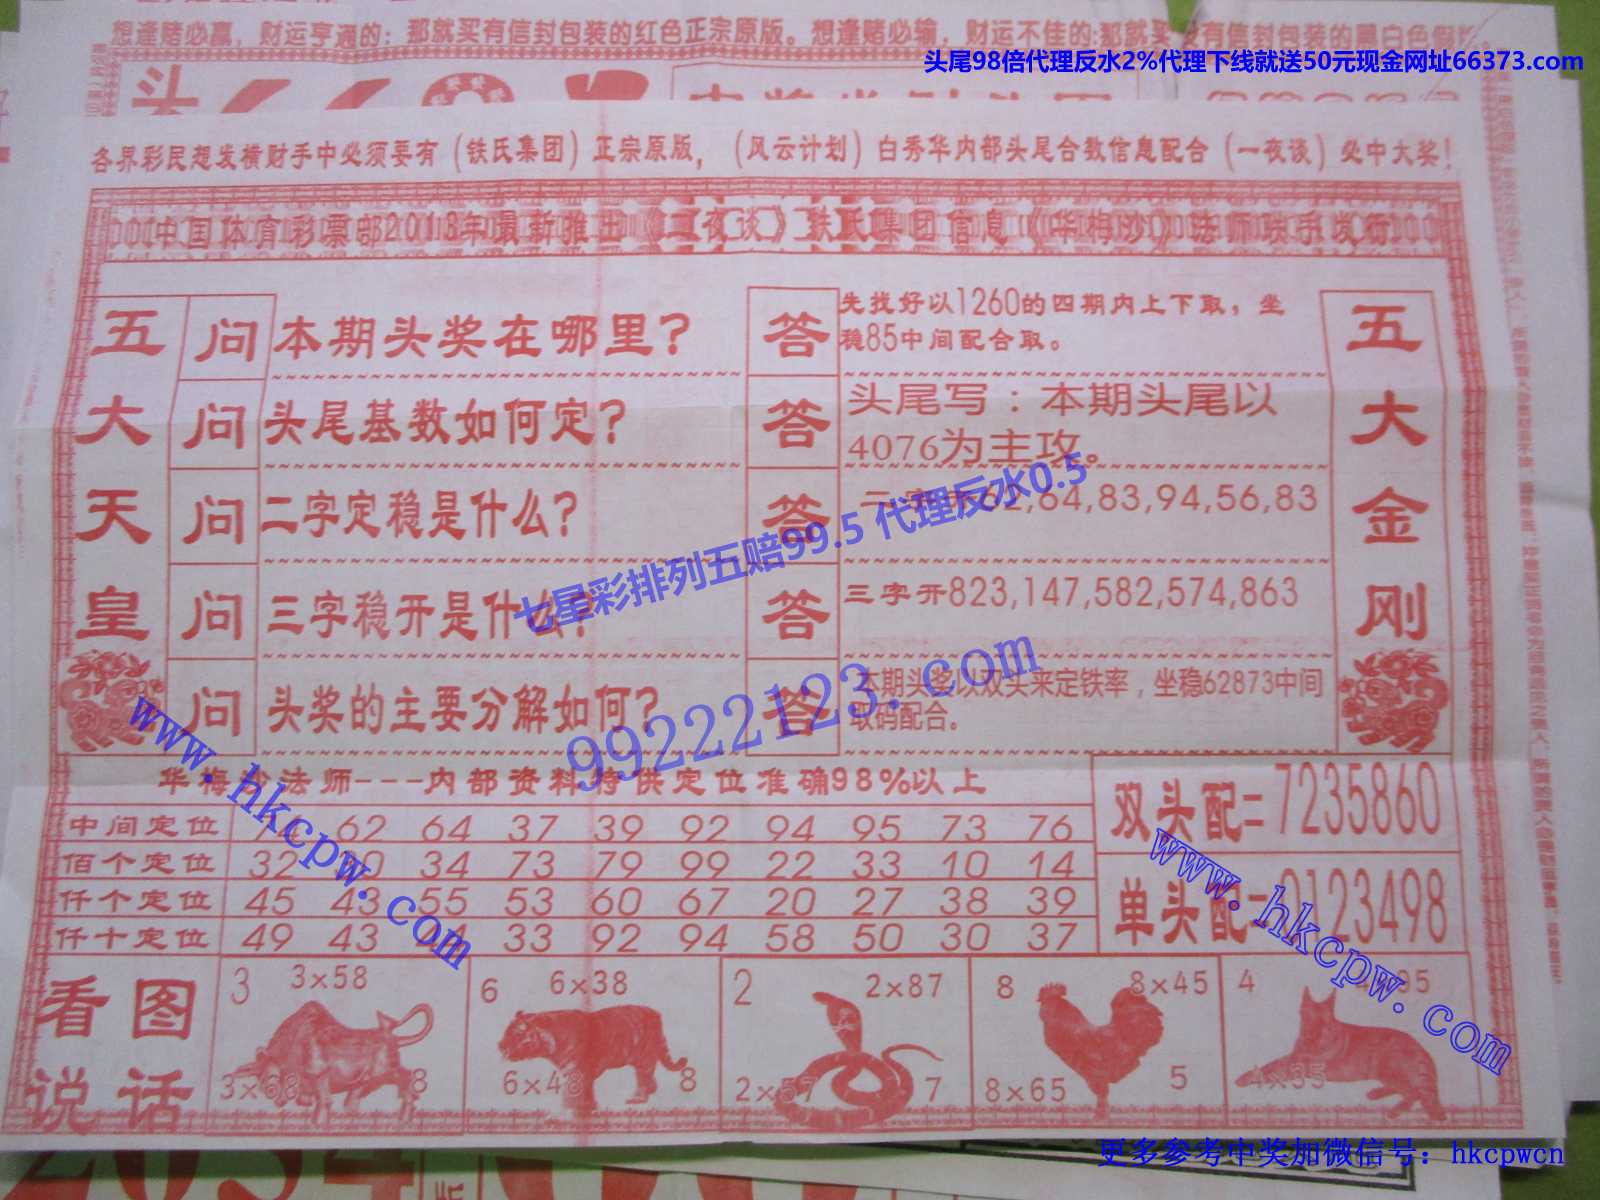 想逢赌必赢，财运亨通的：那就买有信封包装的红色正宗原版。想逢赌必输，财运不佳的：那就买
头尾98倍代理反水2%代理下线就送50元现金网址66373.com
各界彩民想发横财手中必须要有（铁氏集团）正宗原版，（风云计划）白秀华内部头尾合数信息配合（一夜谈）必中大奖！
中国体育彩票部2018年最新推出《一夜谈》铁氏集团信息《华梅沙》法师联手发行
五大天皇
五大金刚
问 本期头奖在哪里？
答 先找好以1260的四期内上下取，坐
稳85中间配合取。
问 头尾基数如何定？
答 头尾写：本期头尾以
4076为主攻。
问 二字定稳是什么？
答 二字开62,64,83,94,56,83
问 三字稳开是什么？
答 三字开823,147,582,574,863
问 头奖的主要分解如何？
答 本期头奖以双头来定铁率，坐稳62873中间
取码配合。
七星彩排列五赔99.5 代理反水0.5
99222123.com
www.hkcpw.com
华梅沙法师---内部资料特供定位准确98%以上
中间定位 62 64 37 39 92 94 95 73 76
佰个定位 32 34 73 79 99 22 33 10 14
仟个定位 45 43 55 53 60 67 20 27 38 39
仟十定位 49 43 44 33 92 94 58 50 30 37
双头配=7235860
单头配=0123498
www.hkcpw.com
看图
说话
3 3×58
3×68 8
6 6×38
6×48 8
2 2×87
2×57 7
8 8×45
8×65 5
4
4×55
更多参考中奖加微信号：hkcpwcn